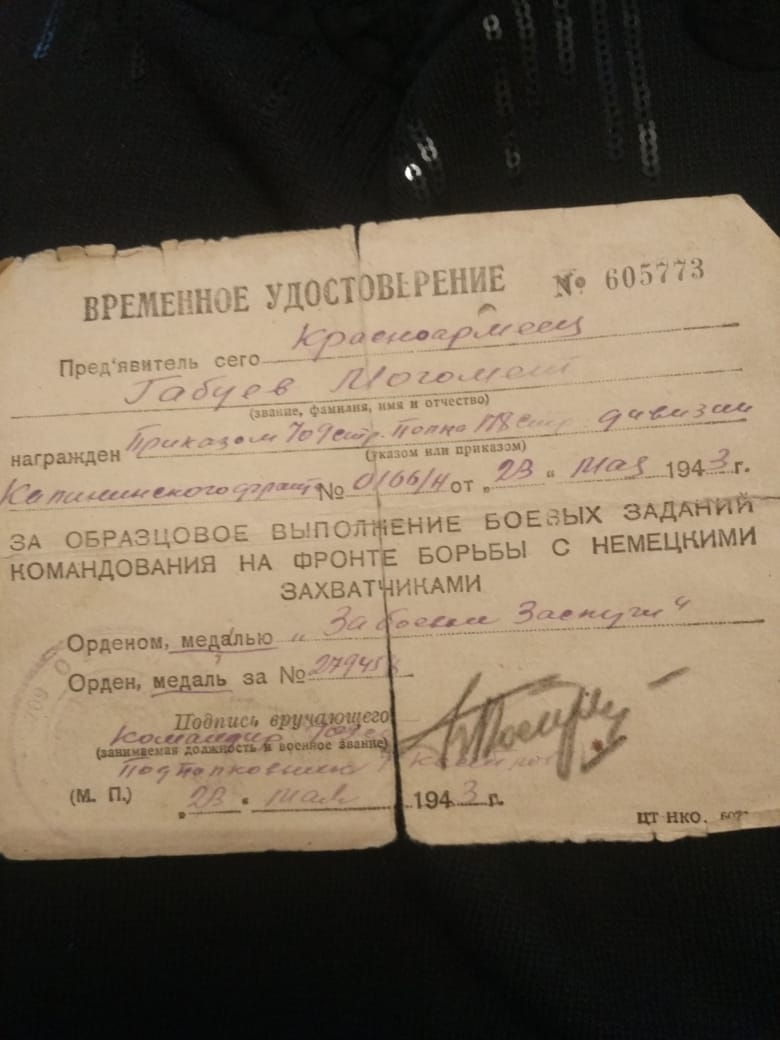 ВРЕМЕННОЕ УДОСТОВЕРЕНИЕ № 605773
Пред'явитель сего Красноармеец
Габуев Могомет
(звание, фамилия, имя и отчество)
награжден Приказом 709 стр. Полка 178 стр. дивизии
(указом или приказом)
Калининского фронта № 0166/н от „23 “ Мая 1943 г.
ЗА ОБРАЗЦОВОЕ ВЫПОЛНЕНИЕ БОЕВЫХ ЗАДАНИЙ
КОМАНДОВАНИЯ НА ФРОНТЕ БОРЬБЫ С НЕМЕЦКИМИ
ЗАХВАТЧИКАМИ
Орденом, медалью „За боевые Заслуги“
Орден, медаль за №
Подпись вручающего
Командир 709
(занимаемая должность и военное звание)
Подполковник
(М. П.) „23 “ мая 1943 г.
ЦТ НКО.
709